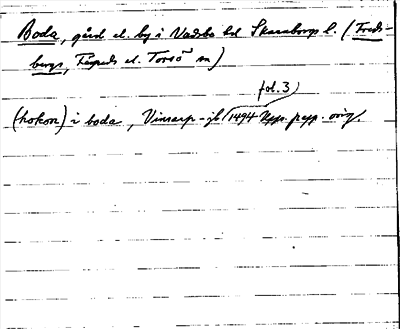 Boda, gård el. by i Vadsbo hd Skaraborgs l. (Freds-
bergs, Färeds el. Torsö sn)
fol. 3)
(hokon) i boda, Vinsarp-jb (1494 Upps. papp. orig.